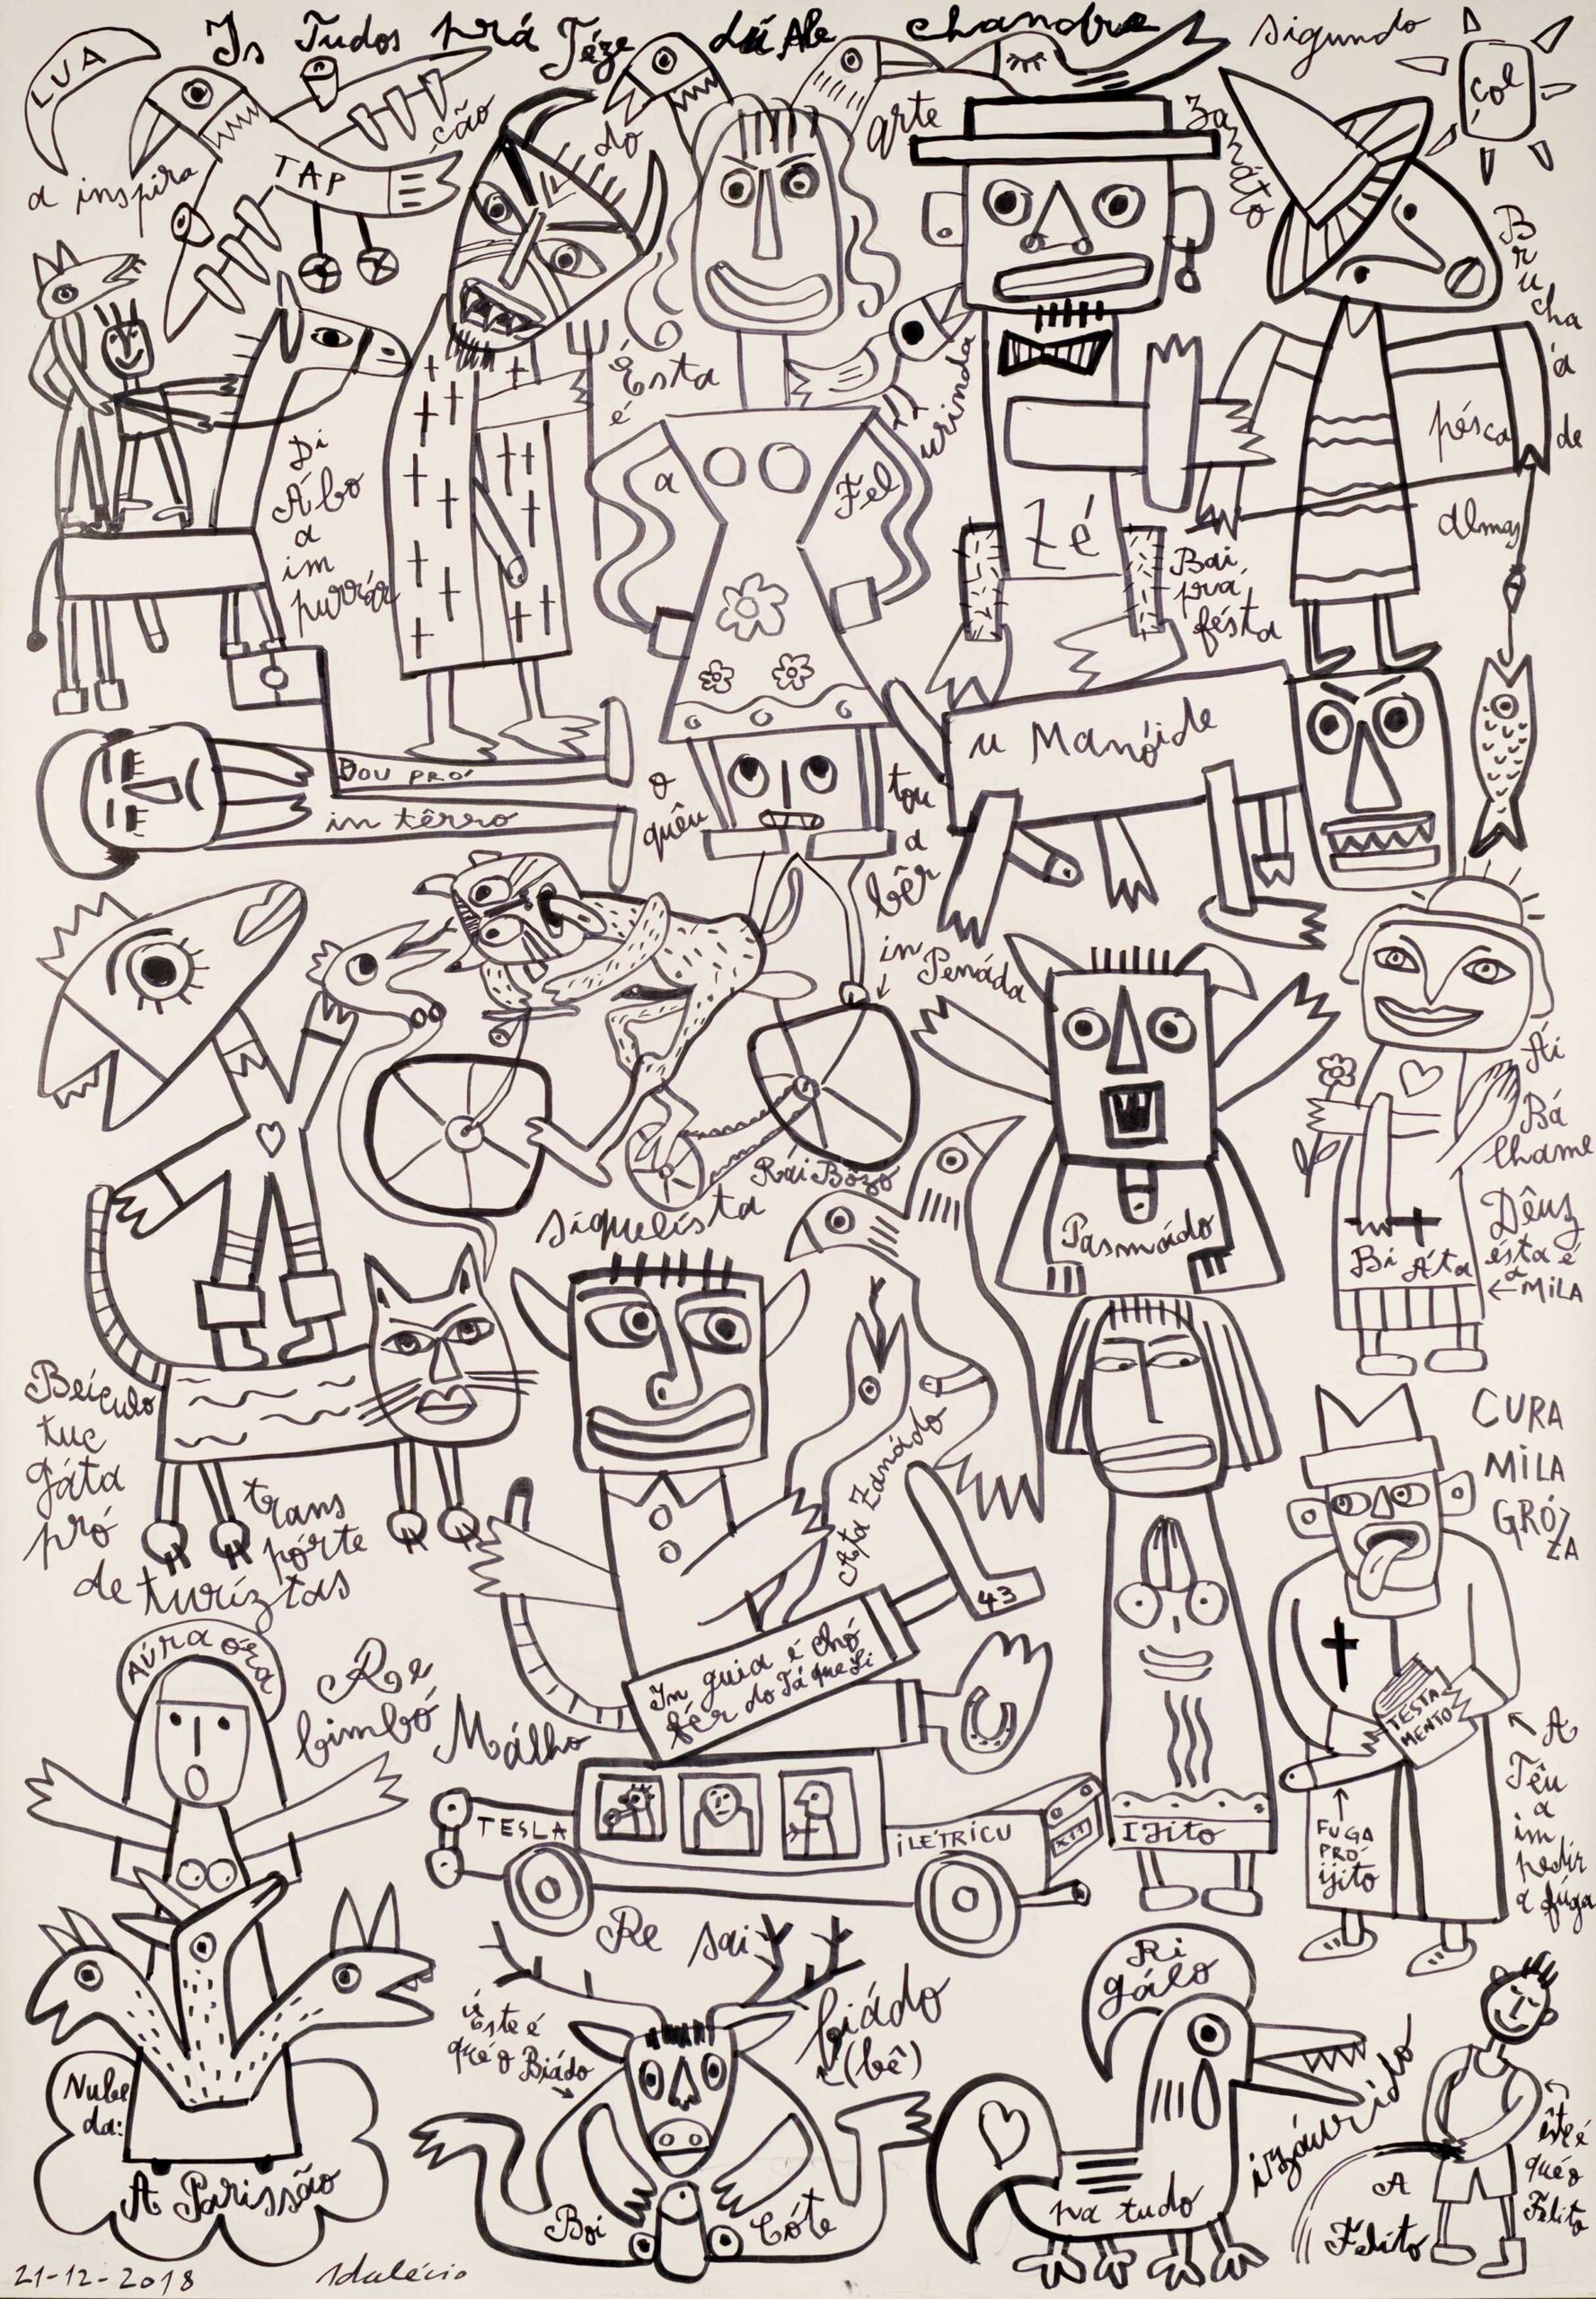 Is Tudos prá Téze dú Ale chandre sigundo
LUA
Sol
a inspira
ção
do
arte
zanáto
TAP
Brucha
á
pésca
de
Almas
Ésta
é
a
Fel
urinda
Zé
Bai
prá
fésta
Di
Ábo
a
im
purrár
BOU PRÓ
in têrro
o
quêu
tou
a
bêr
u Manóide
in
Penáda
Rái Bôzo
siquelísta
Pasmádo
Ái
Bá
lhame
Dêus
ésta é
a
MILA
Bi Áta
CURA
MILA
GRÓ
ZA
Beículo
tuc
gáta
pró
trans
pórte
de turíztas
Ata Zanádo
43
In guia é chó
fér do Tá que Li
AÚRA óra
Re
bimbó
Málho
TESLA
iLÉTRICU
XII
IJito
TESTA
MENTO
FUGA
PRÓ
ijito
A
Têu
a
im
pedir
a fúga
Re sai
biádo
(bê)
Êste é
qué o Biádo
Boi
Cóte
Nube
da:
A Parissão
Ri
gálo
pa tudo
izáurido
A
Felito
êste é
qué o
Felito
21-12-2018
Idalécio